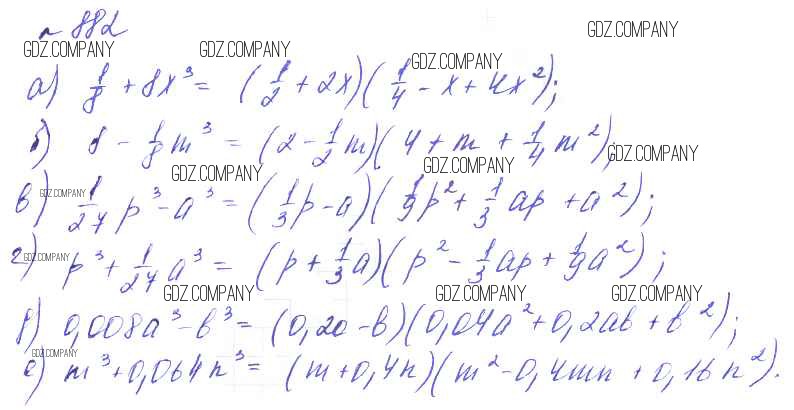 № 882
GDZ.COMPANY GDZ.COMPANY GDZ.COMPANY GDZ.COMPANY
а) 1/8 + 8x³ = (1/2 + 2x)(1/4 - x + 4x²);
б) 8 - 1/8 m³ = (2 - 1/2 m)(4 + m + 1/4 m²);
GDZ.COMPANY GDZ.COMPANY GDZ.COMPANY GDZ.COMPANY
в) 1/27 p³ - a³ = (1/3 p - a)(1/9 p² + 1/3 ap + a²);
GDZ.COMPANY
г) p³ + 1/27 a³ = (p + 1/3 a)(p² - 1/3 ap + 1/9 a²);
GDZ.COMPANY GDZ.COMPANY GDZ.COMPANY
д) 0,008a³ - b³ = (0,2a - b)(0,04a² + 0,2ab + b²);
GDZ.COMPANY
е) m³ + 0,064n³ = (m + 0,4n)(m² - 0,4mn + 0,16n²).